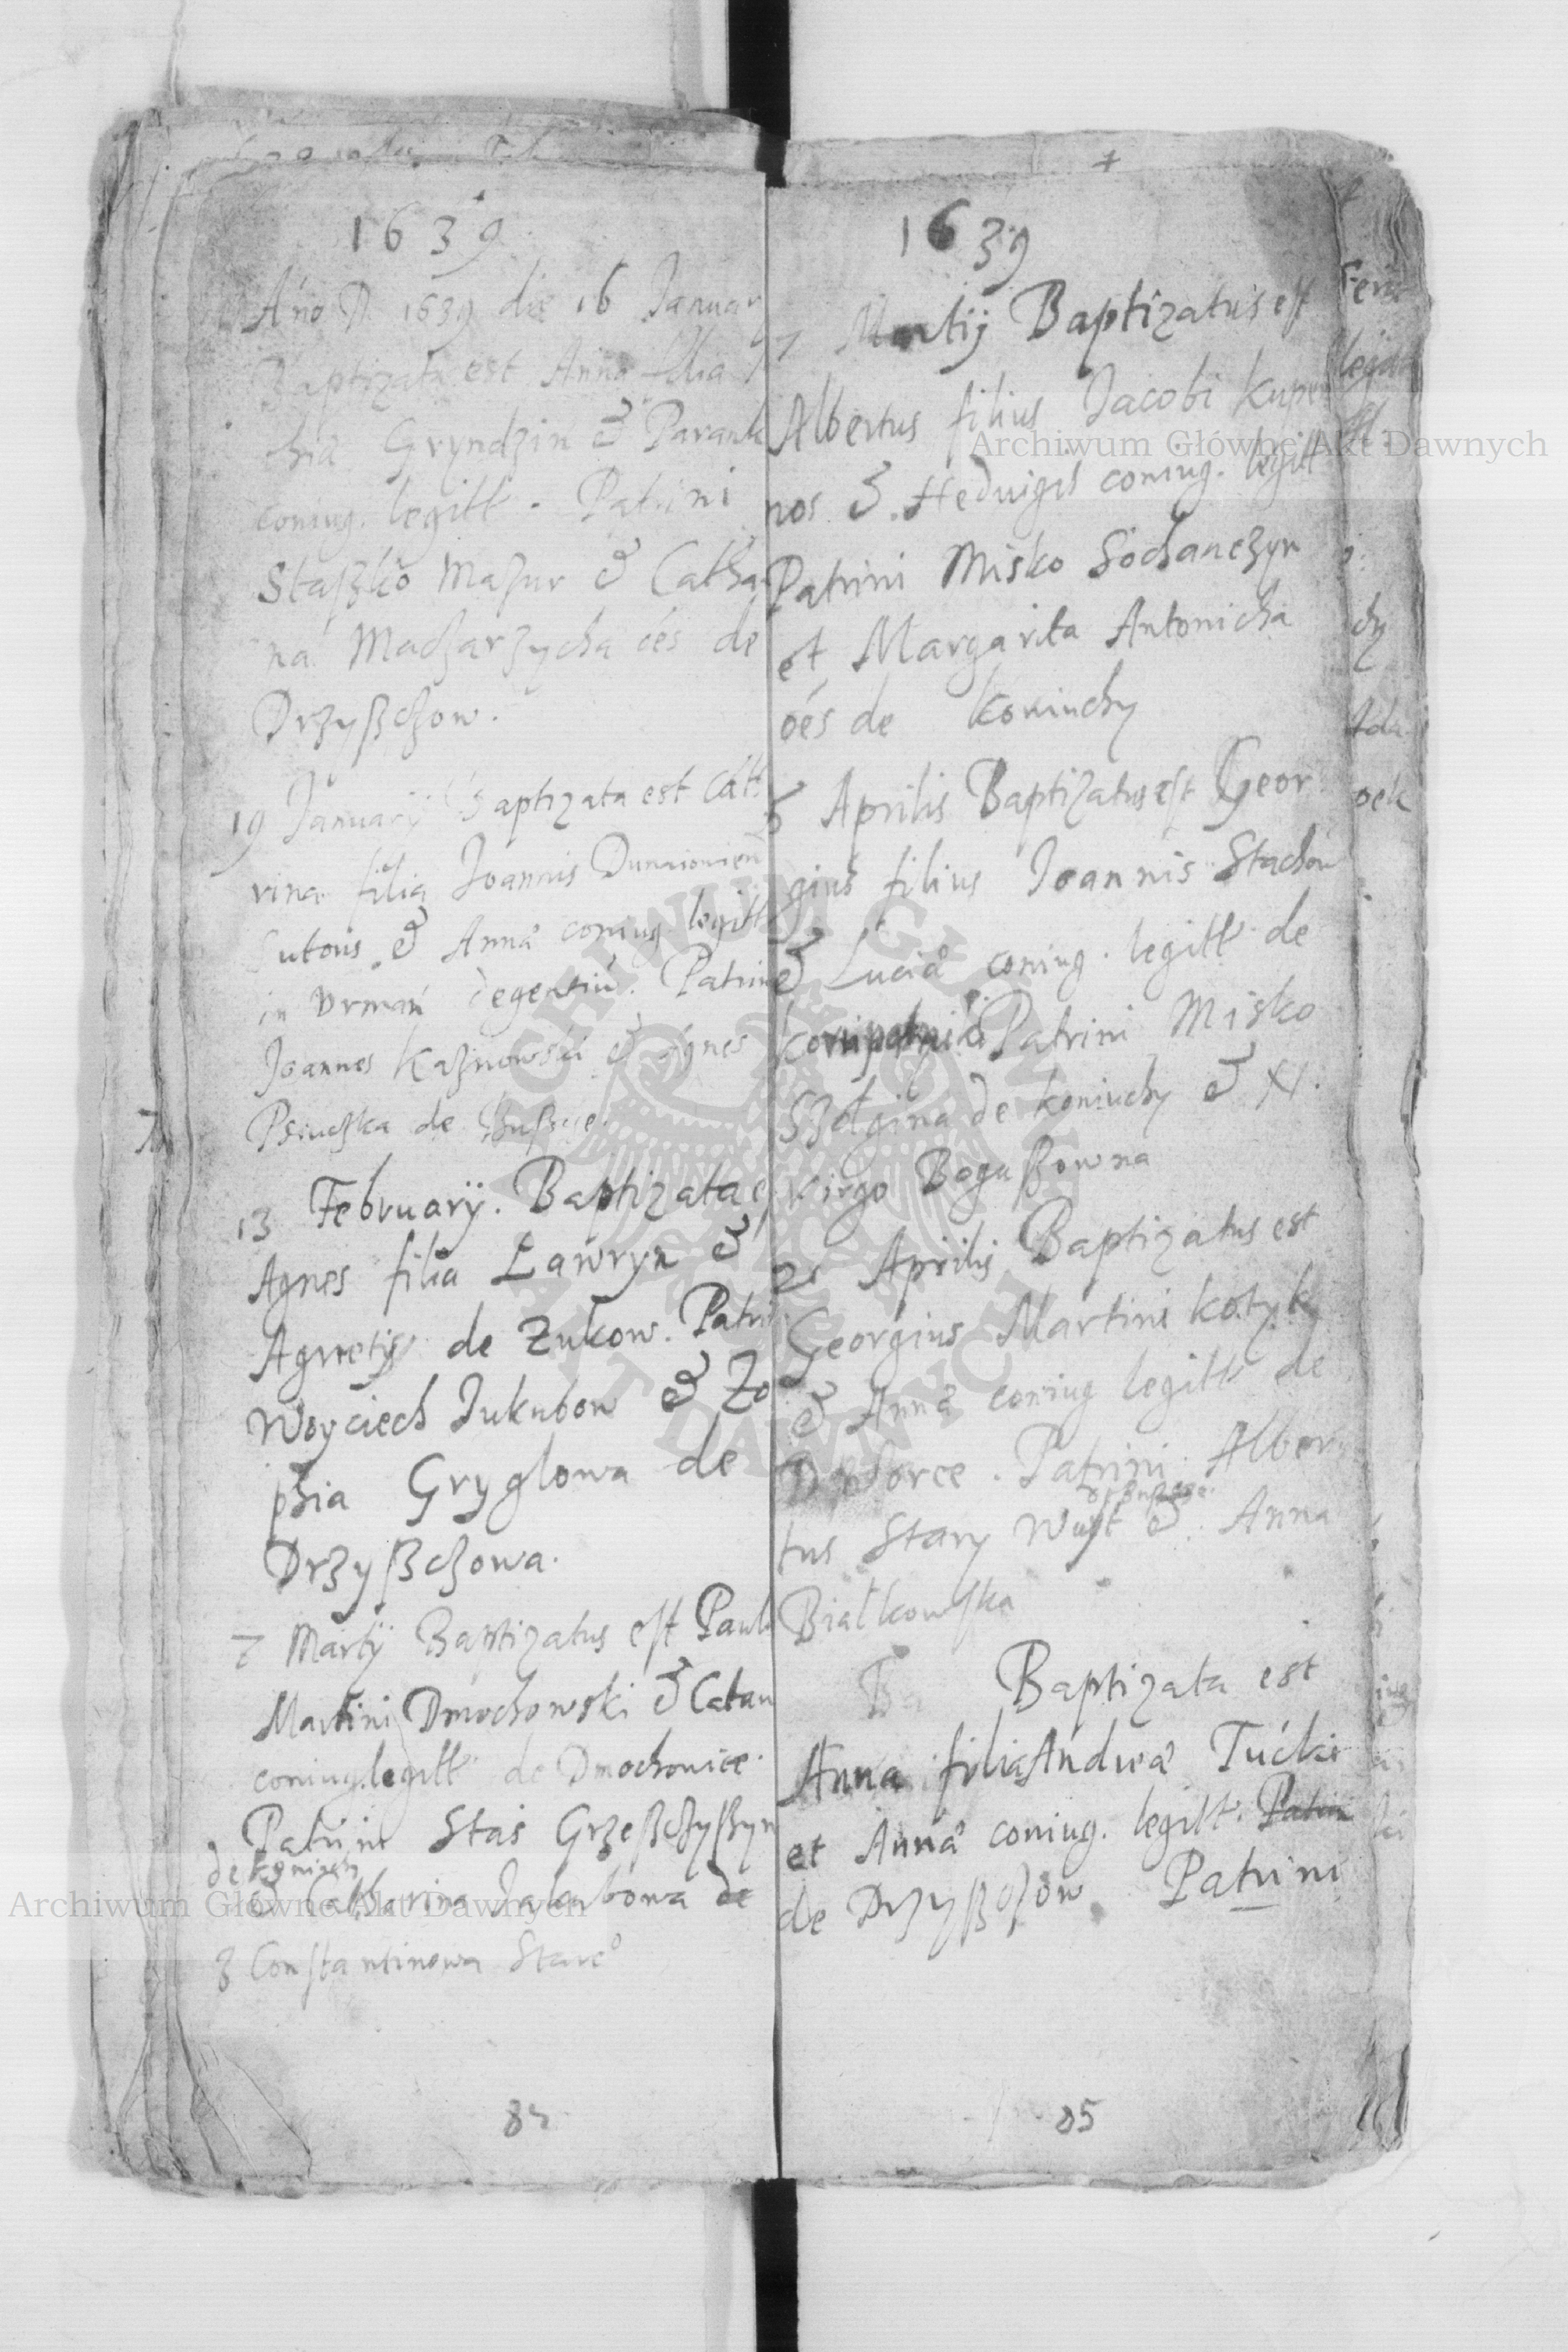 1639
Año D. 1639 die 16 Januar
Baptizata est Anna filia
hia Gryndzin & Parank
coniug. legitt. Patrini
Staszko Mazur & Catha
na Maczarzycha óēs de
Drzyßczow.
19 January Baptizata est Cat
rina filia Joannis Dunaiovien
Sutoris & Annæ coniug legitt
in Vrmań degentiū. Patrini
Joannes Kaznowski & Agnes
Psiuczka de
13 February. Baptizata e
Agnes filia Ławryn &
Agnetis de Zukow. Patri
Woyciech Jukubow & Zo
phia Gryglowa de
Drzyßczowa.
7 Martÿ Baptizatus est Paul
Martini Dmochowski & Catau
coniug. legitt de Dmochowice.
Patrini Staś Grzeßczyßyn
de
& Catharina Jakubowa de
Constantinowa Stare
84
1639
7 Martij Baptizatus est
Albertus filius Jacobi Kuper
nos & Hedvigis coniug. legitt
Patrini Misko Sochanczyn
et Margarita Antonicha
óēs de Koniuchy
Aprilis Baptizatus est Geor
gius filius Joannis Stachow
& Luciæ coniug. legitt de
Patrini Misko
Szelgina de koniuchy &
virgo Bogußowna
Aprilis Baptizatus est
Georgius Martini Kotyk
& Annæ coniug legitt de
Patrini Alber
tus Stary Wuyt & Anna
Białkowska
Ba Baptizata est
Anna filia Andreæ Tućki
et Annæ coniug. legitt. Patrin
de Drzyßczow Patrini
85
Archiwum Główne Akt Dawnych
Archiwum Główne Akt Dawnych
ARCHIWUM GŁÓWNE AKT DAWNYCH